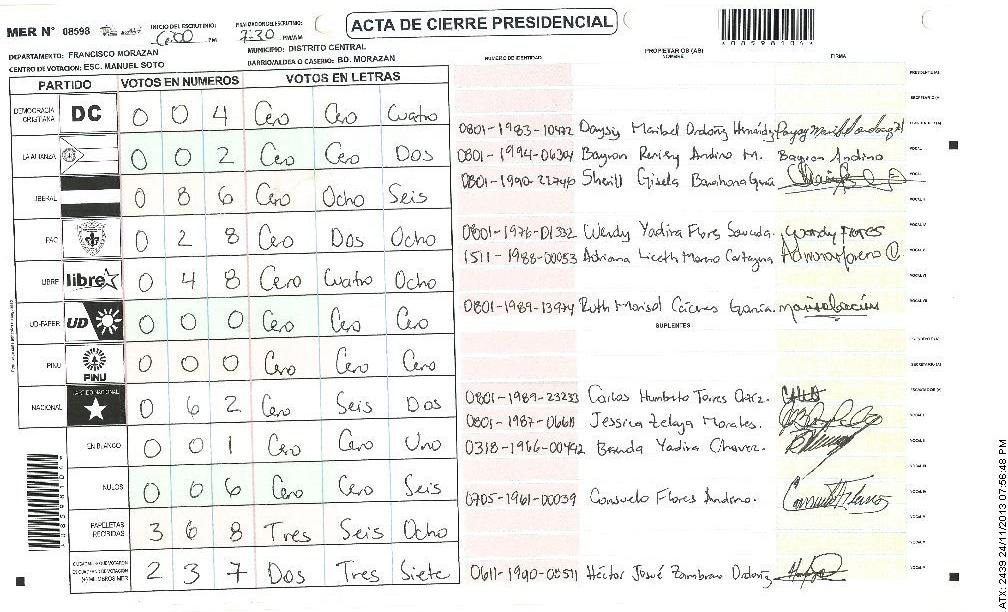 MER N° 08598
INICIO DEL ESCRUTINIO: 6:00 PM
FINALIZACION DEL ESCRUTINIO: 7:30 PM/AM
ACTA DE CIERRE PRESIDENCIAL
DEPARTAMENTO: FRANCISCO MORAZAN
MUNICIPIO: DISTRITO CENTRAL
CENTRO DE VOTACION: ESC. MANUEL SOTO
BARRIO/ALDEA O CASERIO: BO. MORAZAN
PARTIDO VOTOS EN NUMEROS VOTOS EN LETRAS
DEMOCRACIA CRISTIANA DC 0 0 4 Cero Cero Cuatro
LA ALIANZA 0 0 2 Cero Cero Dos
LIBERAL 0 8 6 Cero Ocho Seis
PAC 0 2 8 Cero Dos Ocho
LIBRE libre 0 4 8 Cero Cuatro Ocho
UD-FAPER UD 0 0 0 Cero Cero Cero
PINU PINU 0 0 0 Cero Cero Cero
NACIONAL 0 6 2 Cero Seis Dos
EN BLANCO 0 0 1 Cero Cero Uno
NULOS 0 0 6 Cero Cero Seis
PAPELETAS RECIBIDAS 3 6 8 Tres Seis Ocho
2 3 7 Dos Tres Siete
NUMERO DE IDENTIDAD PROPIETARIOS (AS) NOMBRE FIRMA
0801-1983-10472 Daysis Maribel Ordoñez
0801-1994-06304 Bayron Andino M. Bayron Andino
0801-1990-22740 Sherill Gisela Barahona
0801-1976-01332 Wendy Yadira Flores Sauceda. Wendy Flores
1511-1988-00053 Adriana Liceth Moreno Cartagena
0801-1989-13974 Ruth Marisol Cáceres García.
SUPLENTES
0801-1989-23233 Carlos Humberto Torres
0801-1987-06611 Jessica Zelaya Morales.
0318-1966-00442 Brenda Yadira Chavez.
0705-1961-00039 Consuelo Flores Andino.
0611-1990-00511 Héctor Josué Zambrano Ordoñez
ATX: 2439 24/11/2013 07:56:48 PM